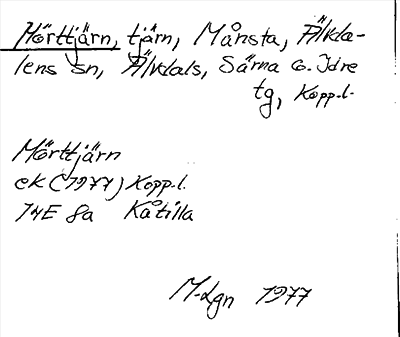 Mörttjärn, tjärn, Månsta, Älvda-
lens sn, Älvdals, Särna o. Idre
tg, Kopp.l.
Mörttjärn
ek (1977) Kopp.l.
14E 8a Kåtilla
M-Lgn 1977